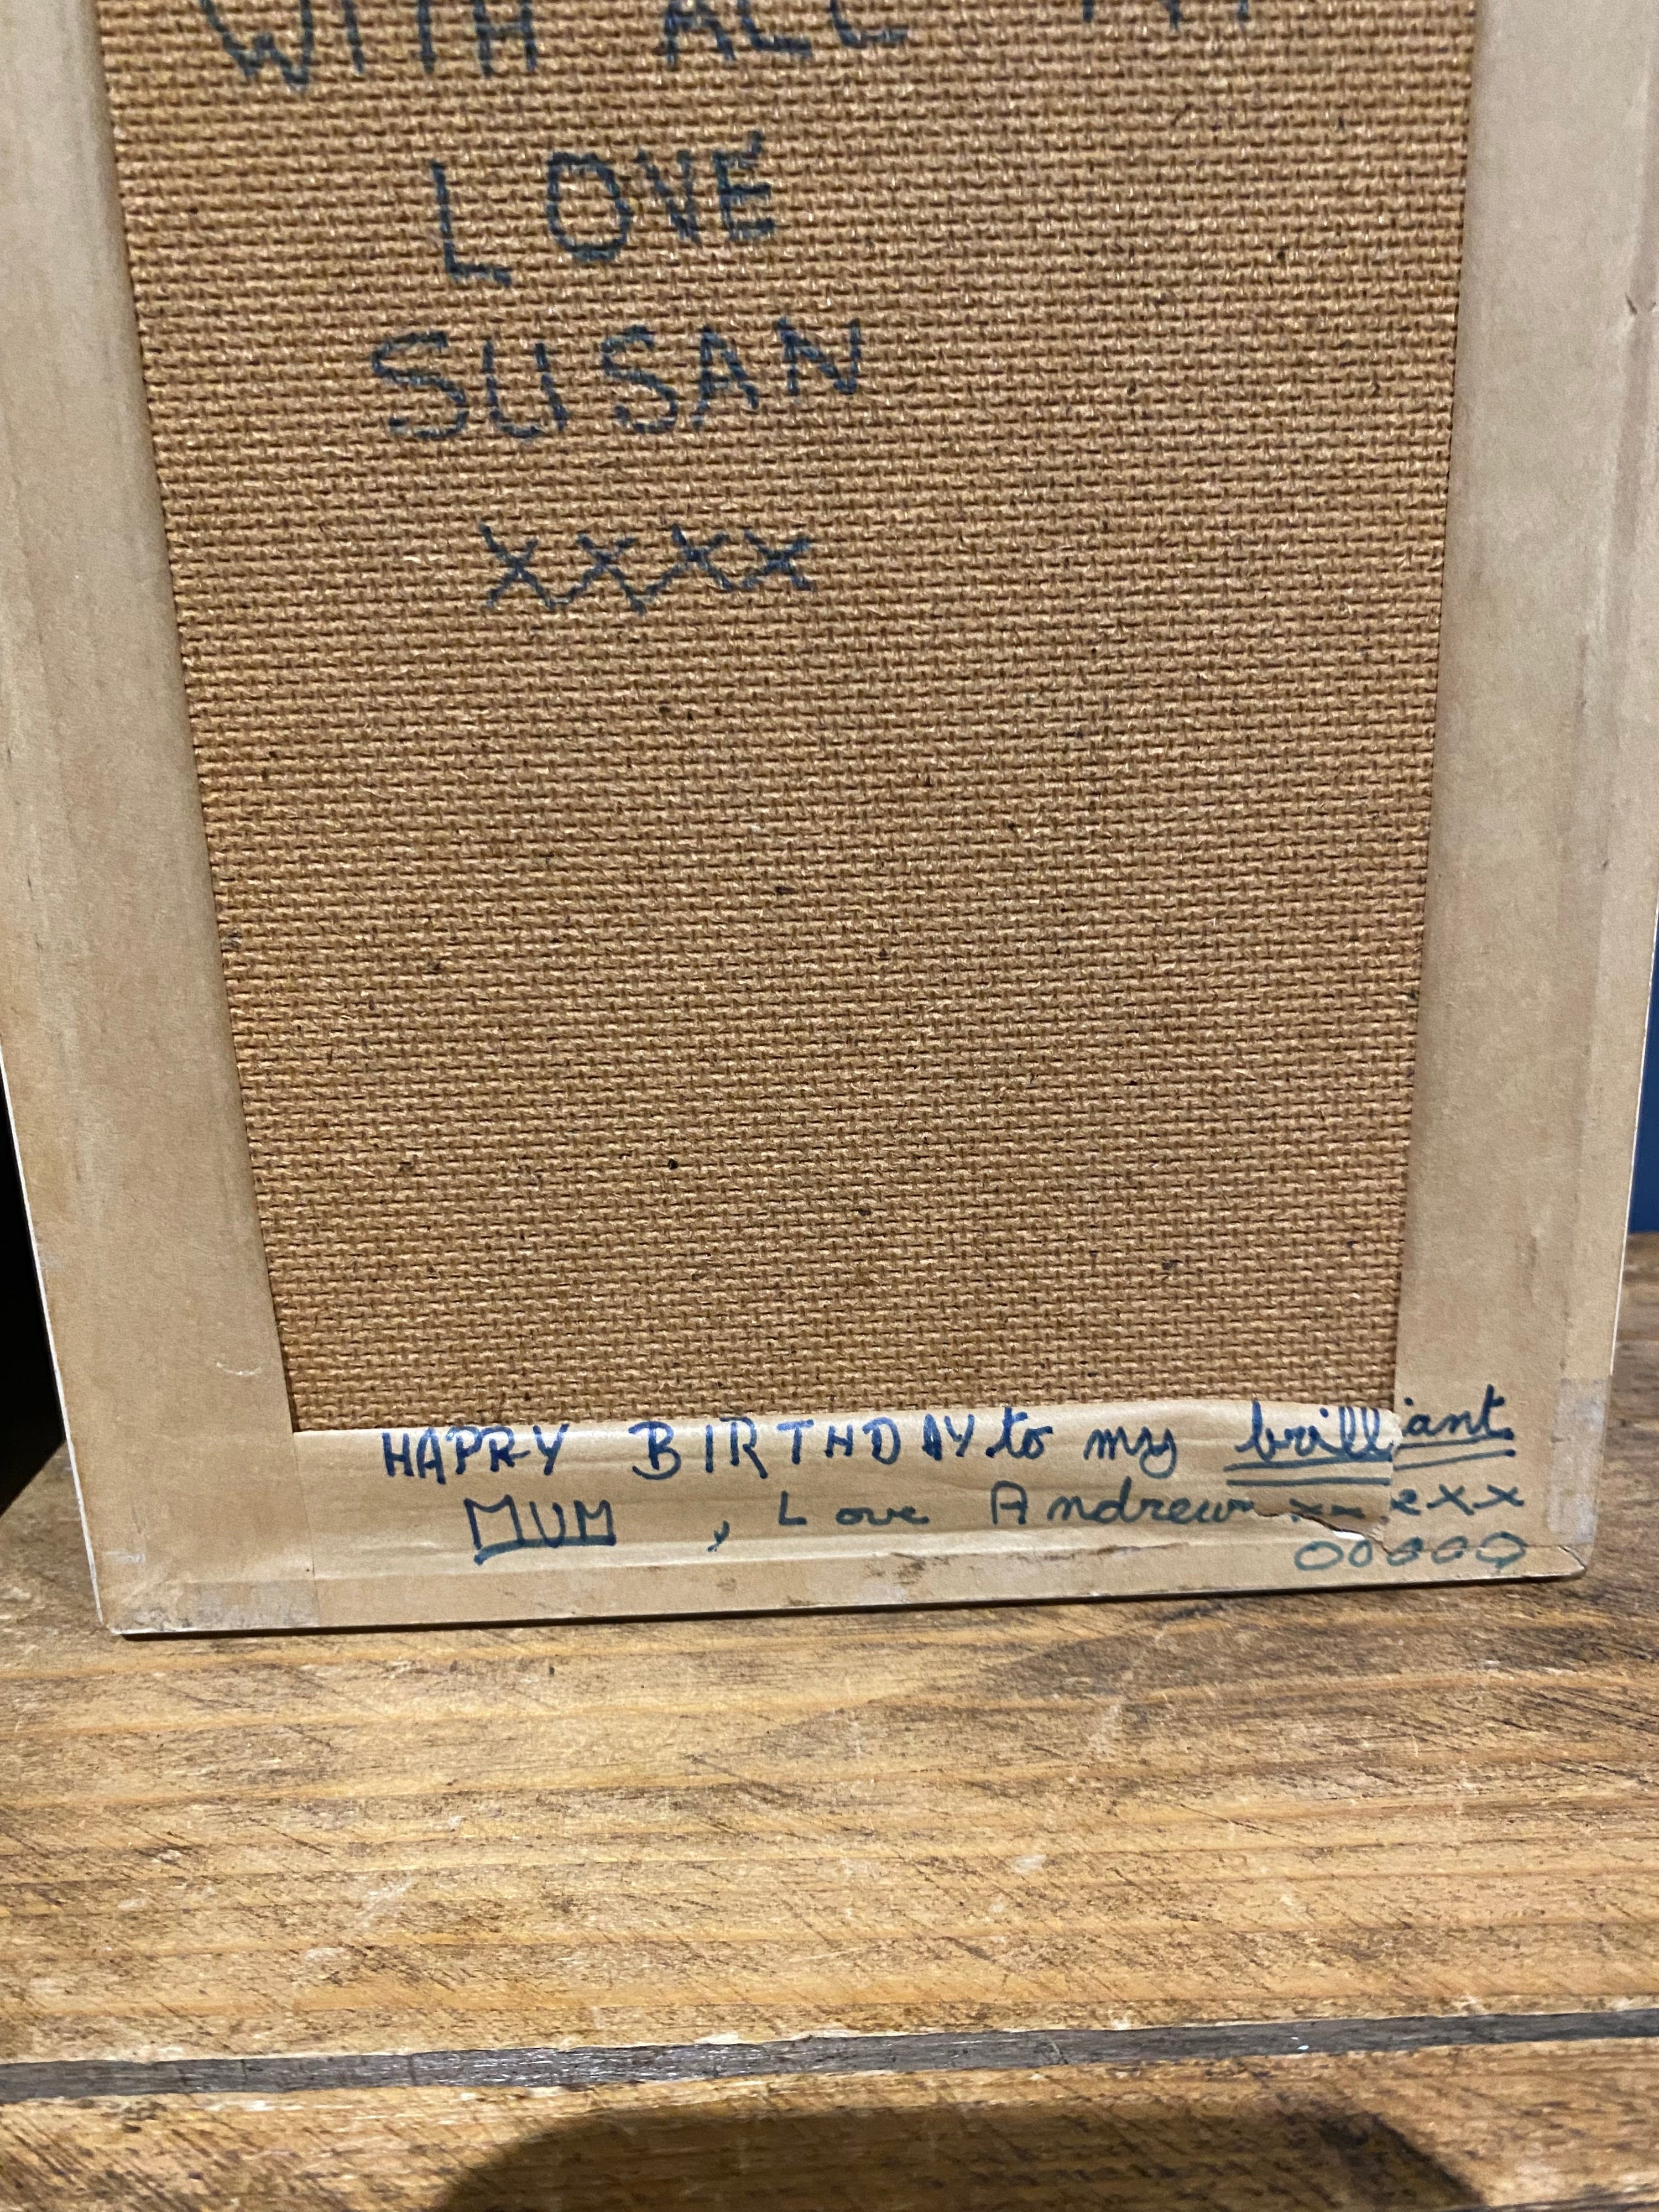 WITH ALL MY
LOVE
SUSAN
xxxx
HAPPY BIRTHDAY to my brilliant
MUM, Love Andrew xxxxx
OOOOO